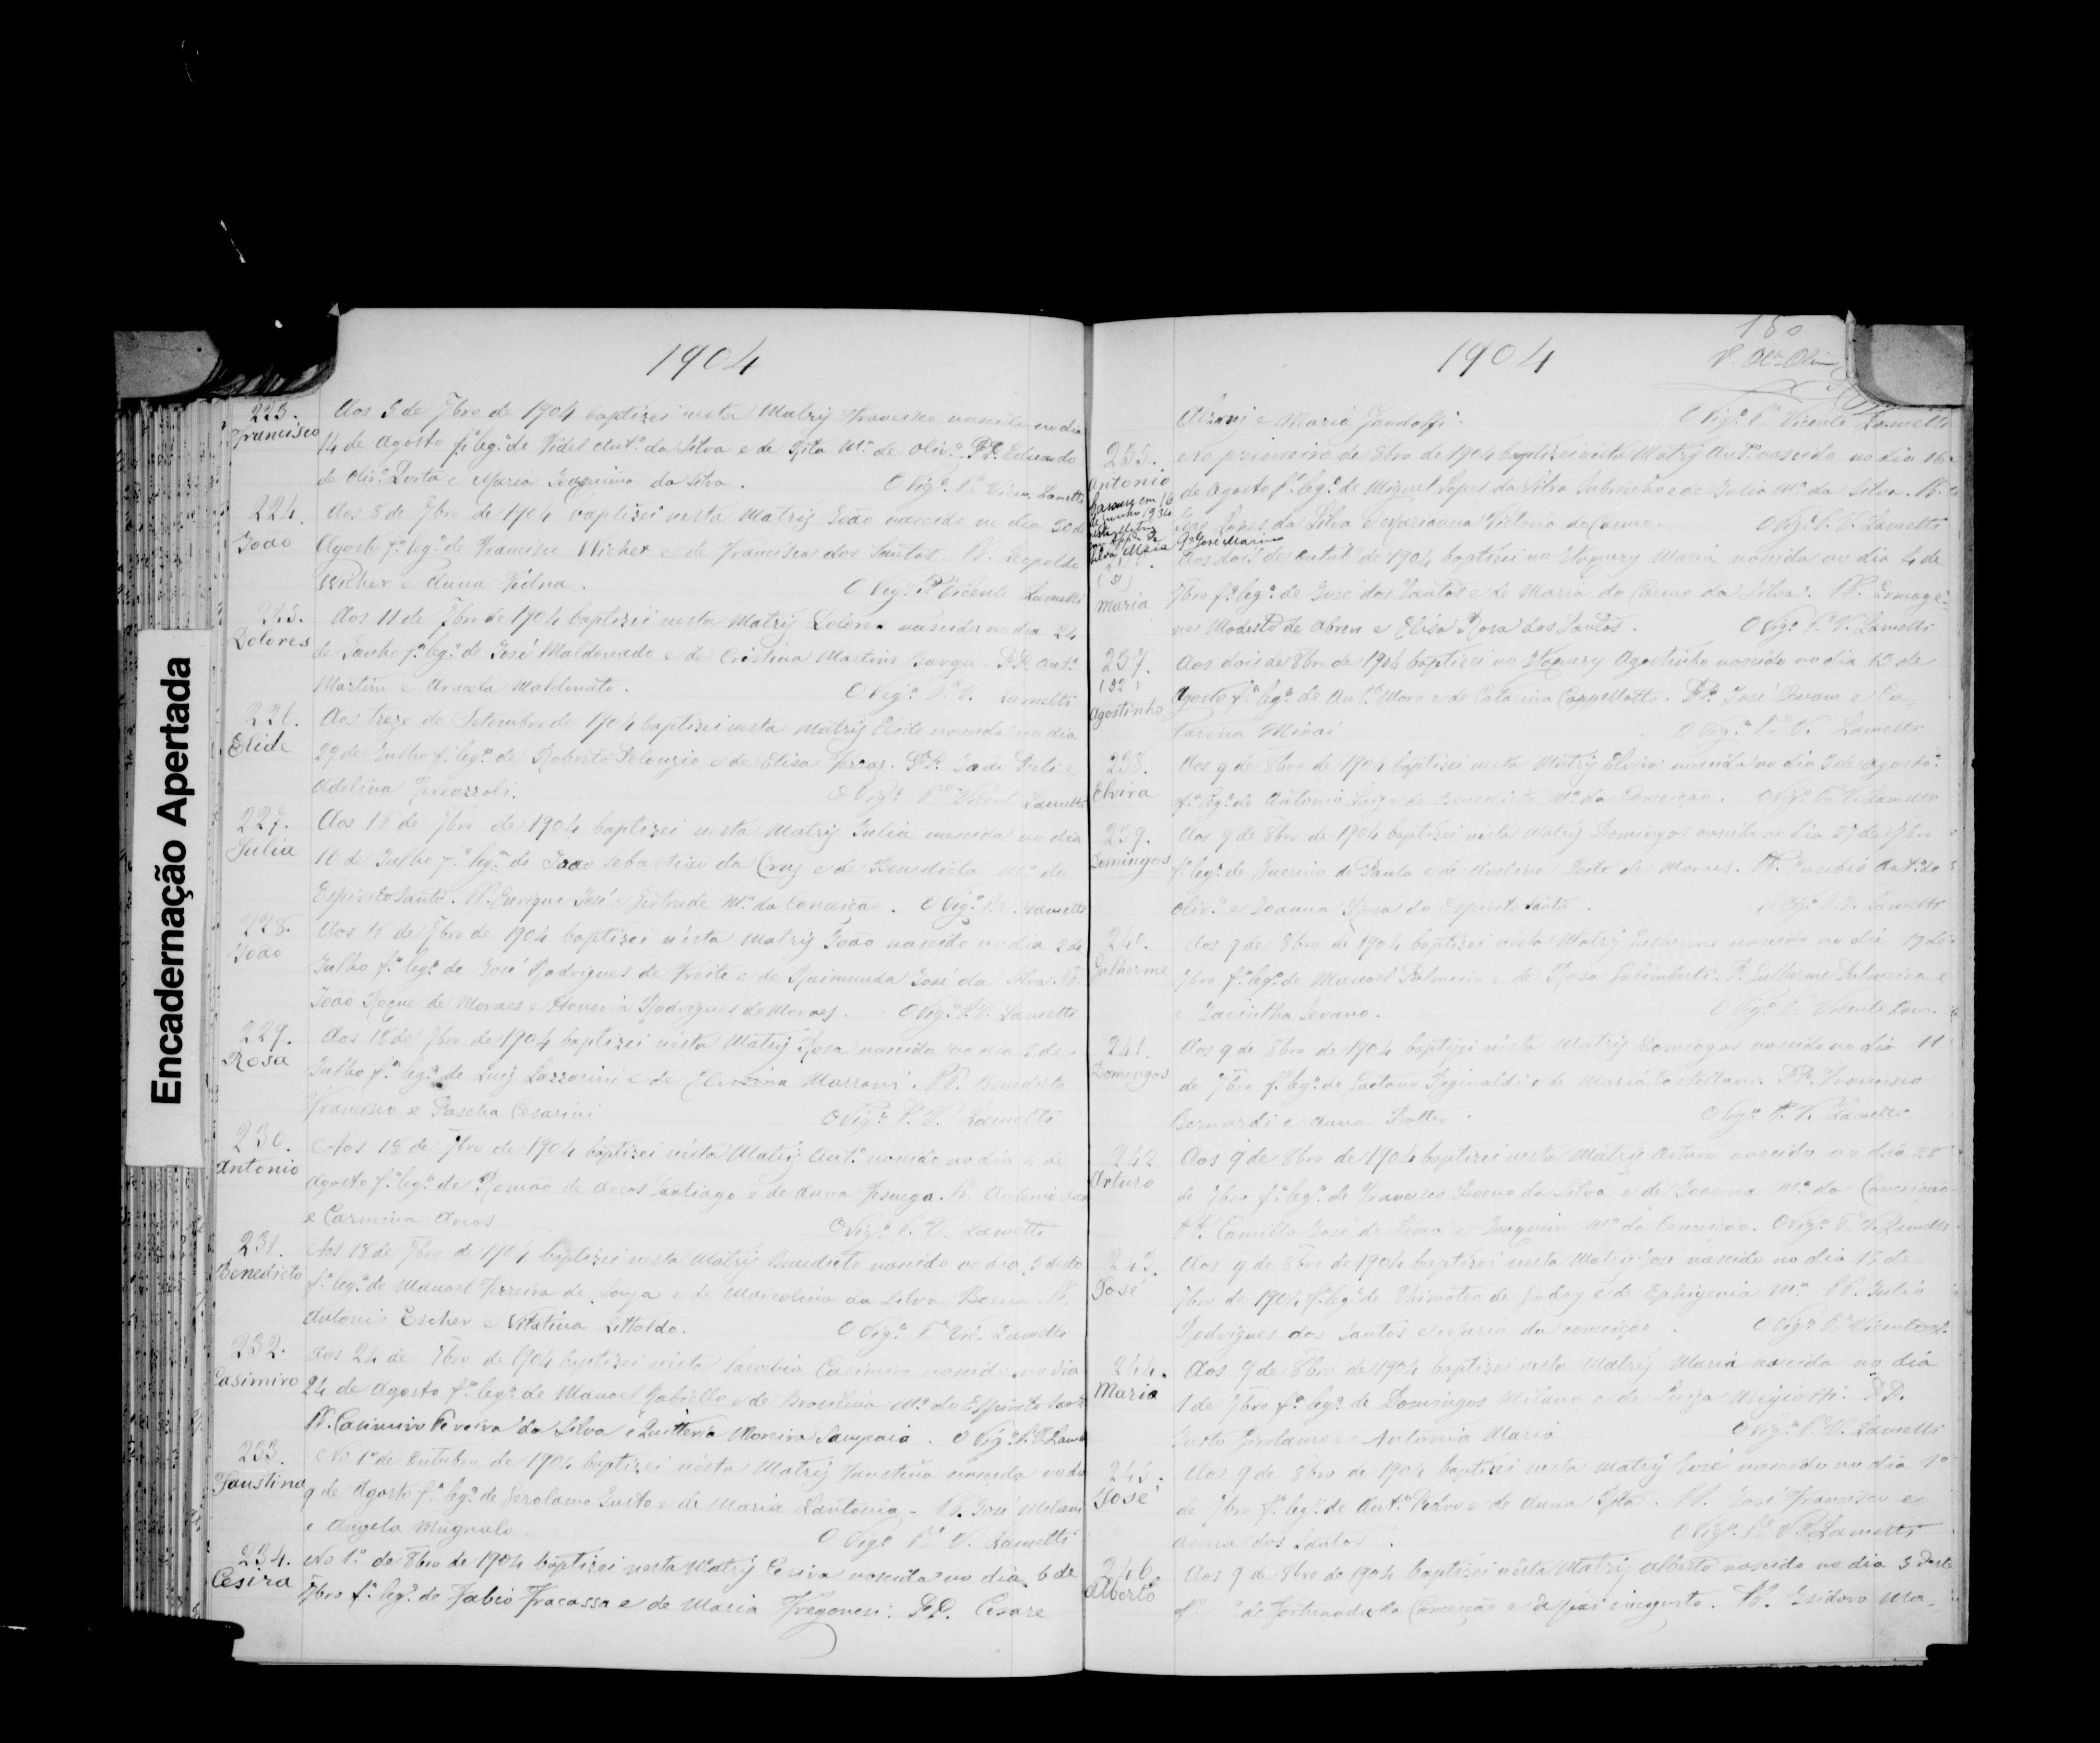 Encadernação Apertada
1904
223.
Francisco
Aos 5 de 7bro de 1904 baptizei nesta Matriz Francisco nascido no dia
14 de Agosto fº legº de Fidel Antº da Silva e de Rita Mª de Olivª. PP. Eduardo
de Olivª Dorta e Maria Joaquina da Silva. O Vigº Pe Vicen. Lametti
224.
João
Aos 8 de 7bro de 1904 baptizei nesta Matriz João nascido no dia 30 de
Agosto fº legº de Francisco Wicher e de Francisca dos Santos. PP. Leopoldo
Wicher e Anna Vidna. O Vigº Pe Vicente Lametti
225.
Dolores
Aos 11 de 7bro de 1904 baptizei nesta Matriz Dolores nascida no dia 24
de Junho fª legª de José Maldonado e de Cristina Martins Barga. PP. Antº
Martim e Aracela Maldonato. O Vigº Pe V. Lametti
226.
Elide
Aos treze de Setembro de 1904 baptizei nesta Matriz Elide nascida no dia
29 de Julho fª legª de Roberto Polonzio e de Elisa Ferraz. PP. João
Adelina O Vigº Pe Vicent. Lametti
227.
Julia
Aos 16 de 7bro de 1904 baptizei nesta Matriz Julia nascida no dia
16 de Julho fª legª de João Sebastião da Cruz e de Benedicta Mª do
Espirito Santo. PP. Enrique José e Gertrude Mª da Conceição. O Vigº P.V. Lametti
228.
João
Aos 16 de 7bro de 1904 baptizei nesta Matriz João nascido no dia 2 de
Julho fº legº de José Rodrigues de Freite e de Raimunda José da Silva. PP.
João Roque de Moraes e Honoria Rodrigues de Moraes. O Vigº P.V. Lametti
229.
Rosa
Aos 18 de 7bro de 1904 baptizei nesta Matriz Rosa nascida no dia de
Julho fª legª de Luiz Lazzarini e de Marroni. PP. Benedicto
Francisco e Pascha Cesarini O Vigº P. V. Lametti
230.
Antonio
Aos 18 de 7bro de 1904 baptizei nesta Matriz Antº nascido no dia de
Agosto fº legº de Romão de Arcos Santiago e de Anna PP. Antonio
e Carmina Arcos O Vigº P. V. Lametti
231.
Benedicto
Aos 18 de 7bro de 1904 baptizei nesta Matriz Benedicto nascido no dia 5 desto
fº legº de Manoel Ferreira de Souza e de Marcolina da Silva PP.
Antonio Escher e Vitalina O Vigº Pe Vic. Lametti
232.
Casimiro
Aos 24 de 7bro de 1904 baptizei nesta Casimiro nascido no dia
24 de Agosto fº legº de Manoel e de Brasilina Mª do Espirito Santo
PP. Casimiro Pereira da Silva e Quitteria Moreira Sampaio. O Vigº P.V. Lametti
233.
Faustina
No 1º de Outubro de 1904 baptizei nesta Matriz Faustina nascida no dia
9 de Agosto fª legª de Gerolamo Justo e de Maria PP. José Milani
e Angela Mugnalo. O Vigº Pe V. Lametti
234.
Cesira
No 1º de 8bro de 1904 baptizei nesta Matriz Cesira nascida no dia 6 de
7bro fª legª de Fabio Fracassa e de Maria Fregonesi. PP. Cesare
1904
180
Alzani e Maria Gandolfi. O Vigº Pe Vicente Lametti
235.
Antonio
Casou-se em 16
de Junho 1934
nesta Matriz
Silva Maia
José Marino
No primeiro de 8bro de 1904 baptizei nesta Matriz Antº nascido no dia 16
de Agosto fº legº de Miguel Lopes da Silva Subrinho e de Julia Mª da Silva. PP.
João Lopes da Silva e Marianna Victoria do Carmo. O Vigº P. V. Lametti
(51)
Maria
Aos dois de Outubº de 1904 baptizei no Itapury Maria nascida no dia 4 de
7bro fª legª de José dos Santos e de Maria do Carmo da Silva. PP. Ermoge-
nes Modesto de Abreu e Elisa Rosa dos Santos. O Vigº P. V. Lametti
237.
(52)
Agostinho
Aos dois de 8bro de 1904 baptizei no Itapury Agostinho nascido no dia 15 de
Agosto fº legº de Antº Moro e de Catarina Cappellotto. PP. José e Ca-
tarina O Vigº Pe V. Lametti
238.
Elvira
Aos 9 de 8bro de 1904 baptizei nesta Matriz Elvira nascida no dia 3 de Agosto
fª legª de Antonio Luiz e de Benedicta Mª da Conceição. O Vigº Pe V. Lametti
239.
Domingos
Aos 9 de 8bro de 1904 baptizei nesta Matriz Domingos nascido no dia 27 de 7bro
fº legº de Guerino de Paula e de de Moraes. PP. Eusebio Antº de
Olivª e Joanna Rosa do Espirito Santo. O Vigº P.V. Lametti
240.
Gulherme
Aos 9 de 8bro de 1904 baptizei nesta Matriz Gulherme nascido no dia 17 de
7bro fº legº de Manoel Palmeiro e de Rosa Galimberti. P. Gulherme Palmeira e
e Jacintha O Vigº Pe Vicente Lam.
241.
Domingos
Aos 9 de 8bro de 1904 baptizei nesta Matriz Domingos nascido no dia 11
de 7bro fº legº de Gaetano Reginaldi e de Maria Castellani. PP. Francisco
Bernardi e Anna Botter. O Vigº P. V. Lametti
242.
Arturo
Aos 9 de 8bro de 1904 baptizei nesta Matriz Arturo nascido no dia 25
de 7bro fº legº de Francisco Bueno da Silva e de Joanna Mª da Conceição
PP. Camillo José de Lima e Joaquina Mª da Conceição. O Vigº Pe V. Lametti
243.
José
Aos 9 de 8bro de 1904 baptizei nesta Matriz José nascido no dia 15 de
7bro de 1904 fº legº de Thimoteo de Godoy e de Ephigenia Mª. PP. Julio
Rodrigues dos Santos e Maria da Conceição. O Vigº Pe Vicente L.
244.
Maria
Aos 9 de 8bro de 1904 baptizei nesta Matriz Maria nascida no dia
1 de 7bro fª legª de Domingos Milano e de Luiza PP.
Justo Girolamo e Antonia Maria O Vigº Pe V. Lametti
245.
José
Aos 9 de 8bro de 1904 baptizei nesta Matriz José nascido no dia 1º
de 7bro fº legº de Antº Pedro e de Anna Rita. PP. José Francisco e
Anna dos Santos. O Vigº Pe V. Lametti
246.
Alberto
Aos 9 de 8bro de 1904 baptizei nesta Matriz Alberto nascido no dia 3 deste
fº de Fortunada da Conceição e de pai incognito. PP. Isidoro Mo-